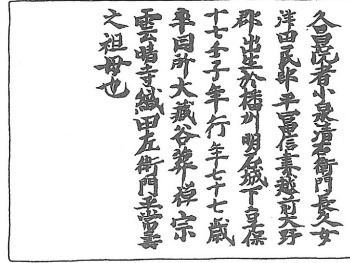 久昌院者小泉清右衛門長久女
津田民部平冨信妻越前大野
郡出生於播州明石城下享保
十七壬子年行年七十七歳
卒同所大蔵谷葬禅宗
雲晴寺織田左衛門平常壽
之祖母也